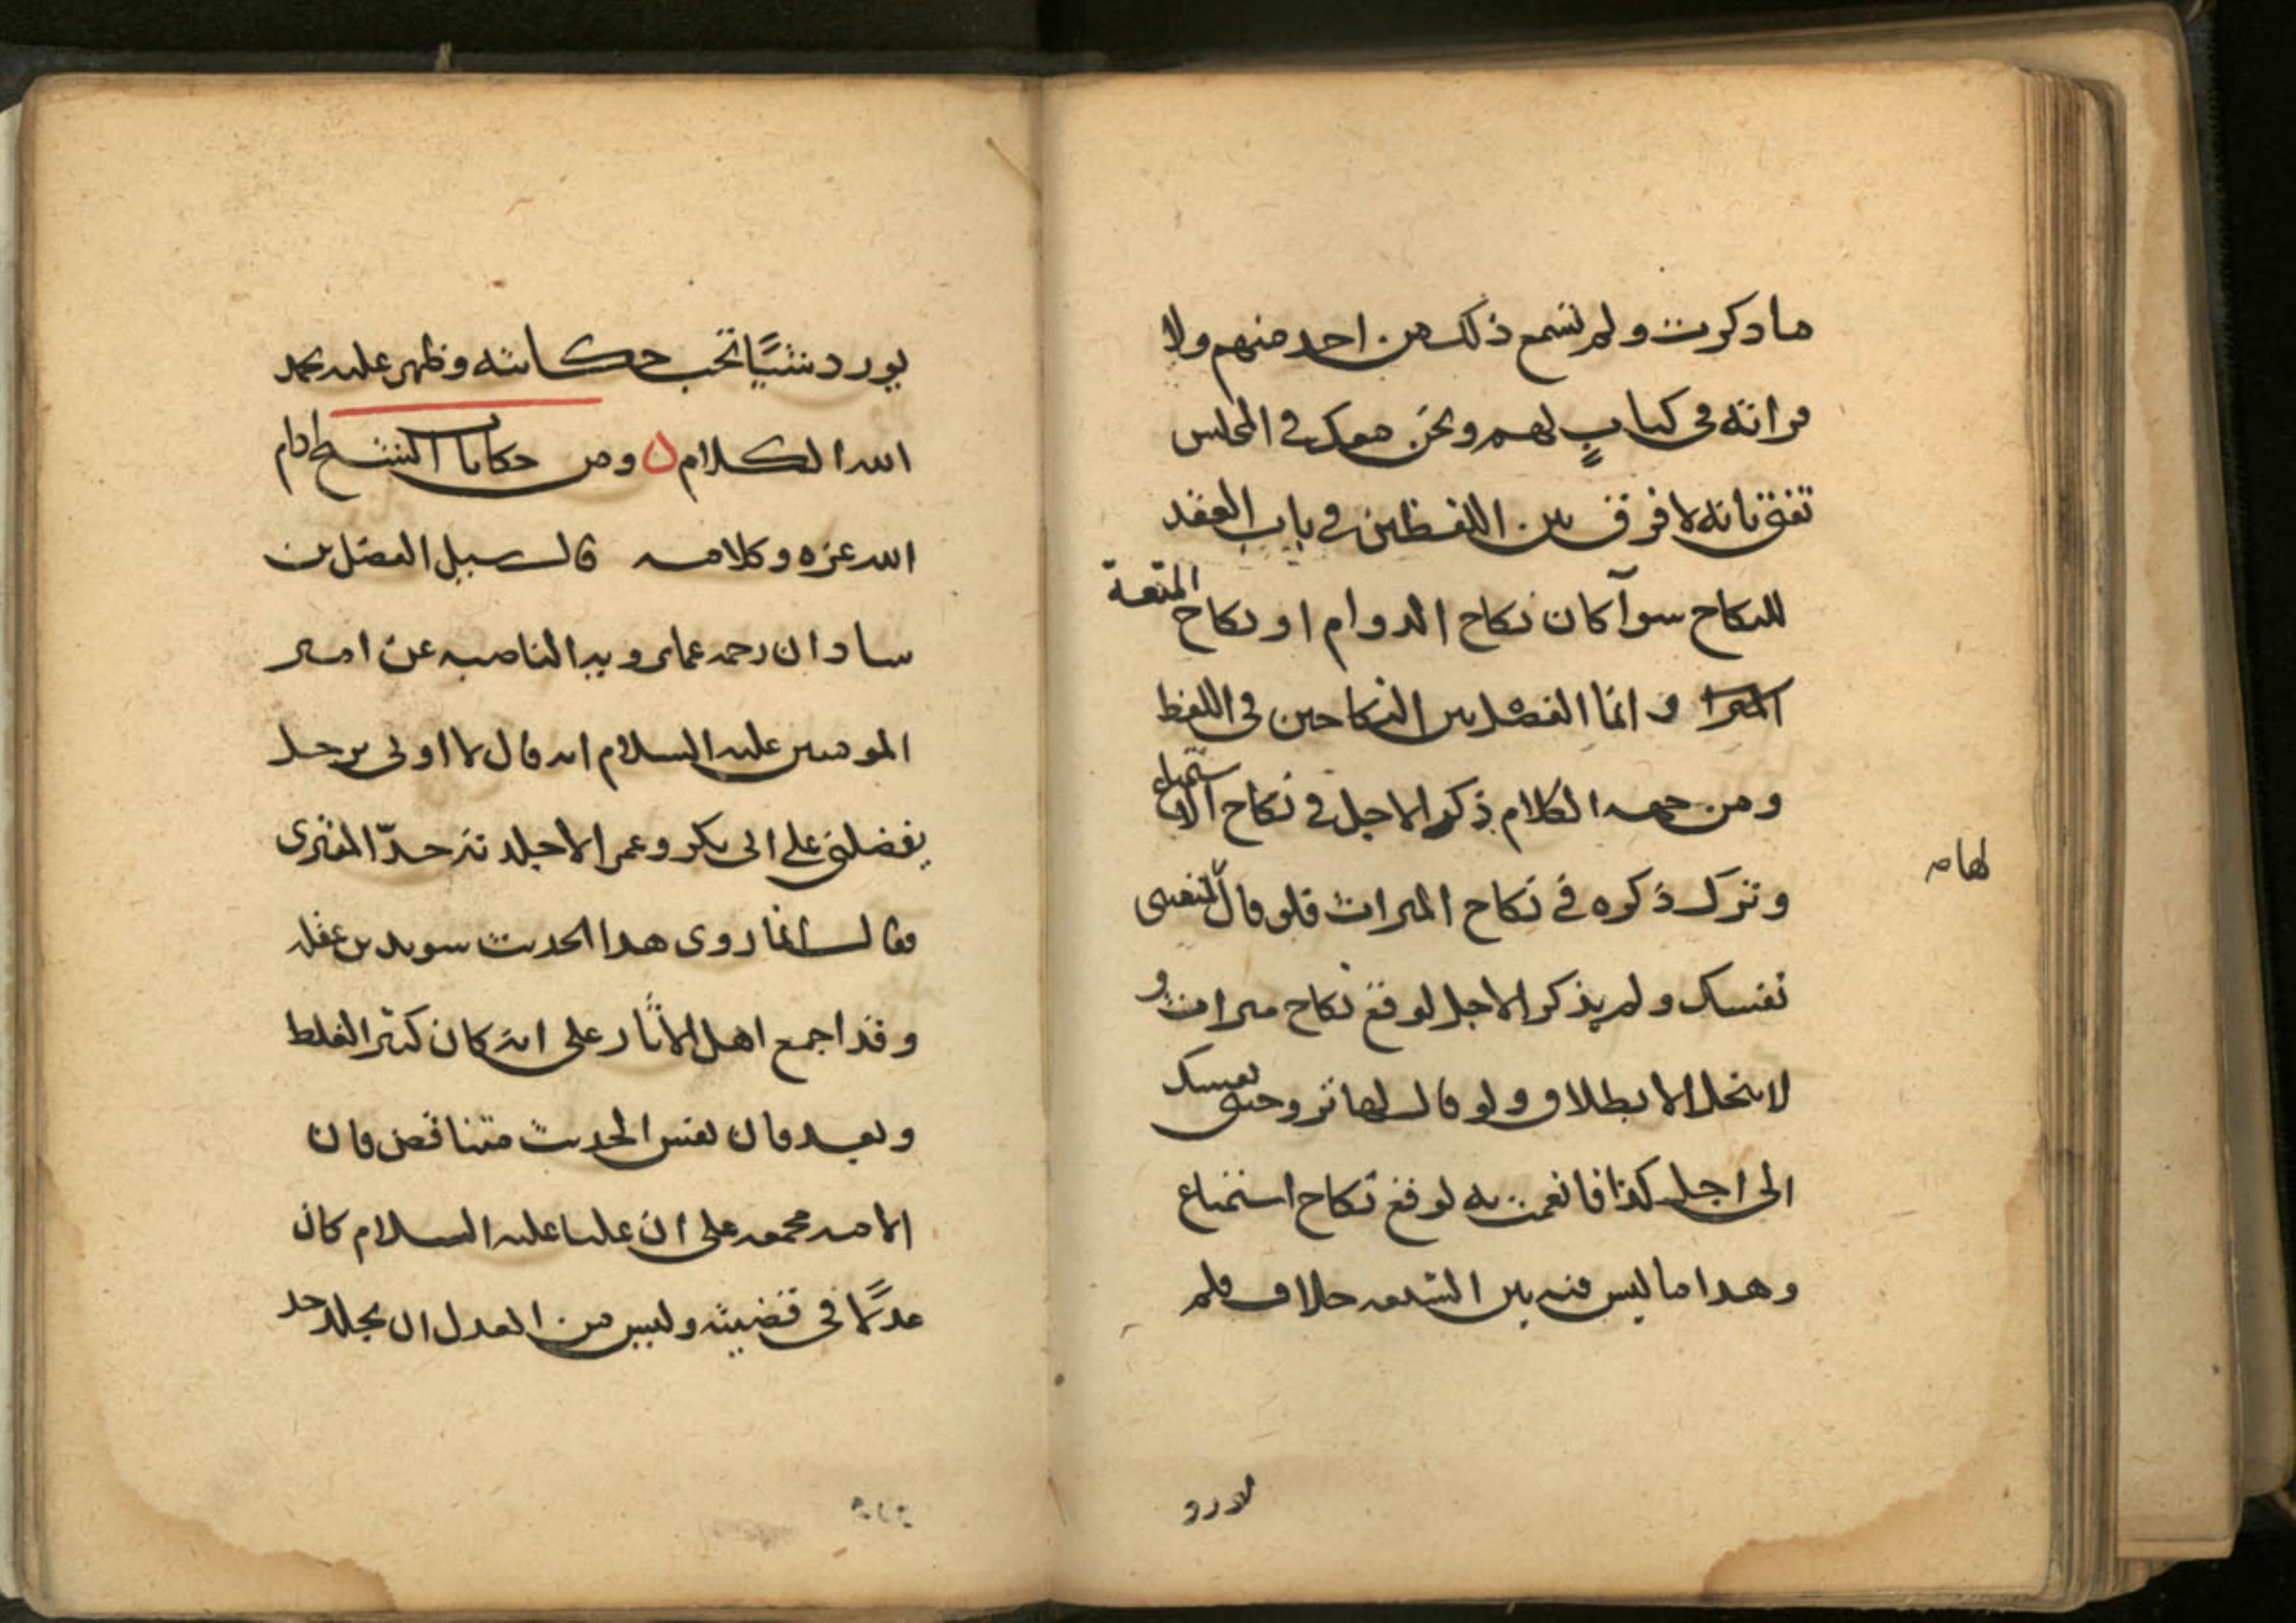 ما دكرت ولم نسمع ذلك من احد منهم ولا
قرانه فى كتابٍ لهم ونحن معك في المجلس
تفتى بانه لا فرق بين اللفظين في باب العقد
للنكاح سوآ كان نكاح الدوام او نكاح المتعة
وانما الفصل بين النكاحين فى اللفظ
ومن جهه الكلام ذكر الاجل في نكاح الاستمتاع
وترك ذكره في نكاح الميراث فلو قال متعينى
لها مه
نفسك ولم يذكر الاجل لوقع نكاح ميراث و
لا ينحل الا بطلاق ولو قال لها تزوجينى نفسك
الى اجل كذا فانعمت به لوقع نكاح استمتاع
وهدا ما ليس فيه بين الشيعه خلاف فلم
يورد شيًا تجب حكايته وظهر عليه بحمد
الله الكلام ٥ ومن حكايات الشيخ ادام
الله عزه وكلامه قال سيل الفضل بن
سادان رحمه عما يرويه الناصبه عن امير
المومنين عليه السلام انه قال لا اوتى برجل
يفضلنى على ابى بكر وعمر الا جلدته حدّ المفترى
فقال انما روى هدا الحديث سويد بن غفله
وقد اجمع اهل الاثار على انه كان كثير الغلط
وبعد فان نفس الحديث متناقض فان
الامه مجمعه على ان عليا عليه السلام كان
عدلًا فى قضيته وليس من العدل ان يجلد حد